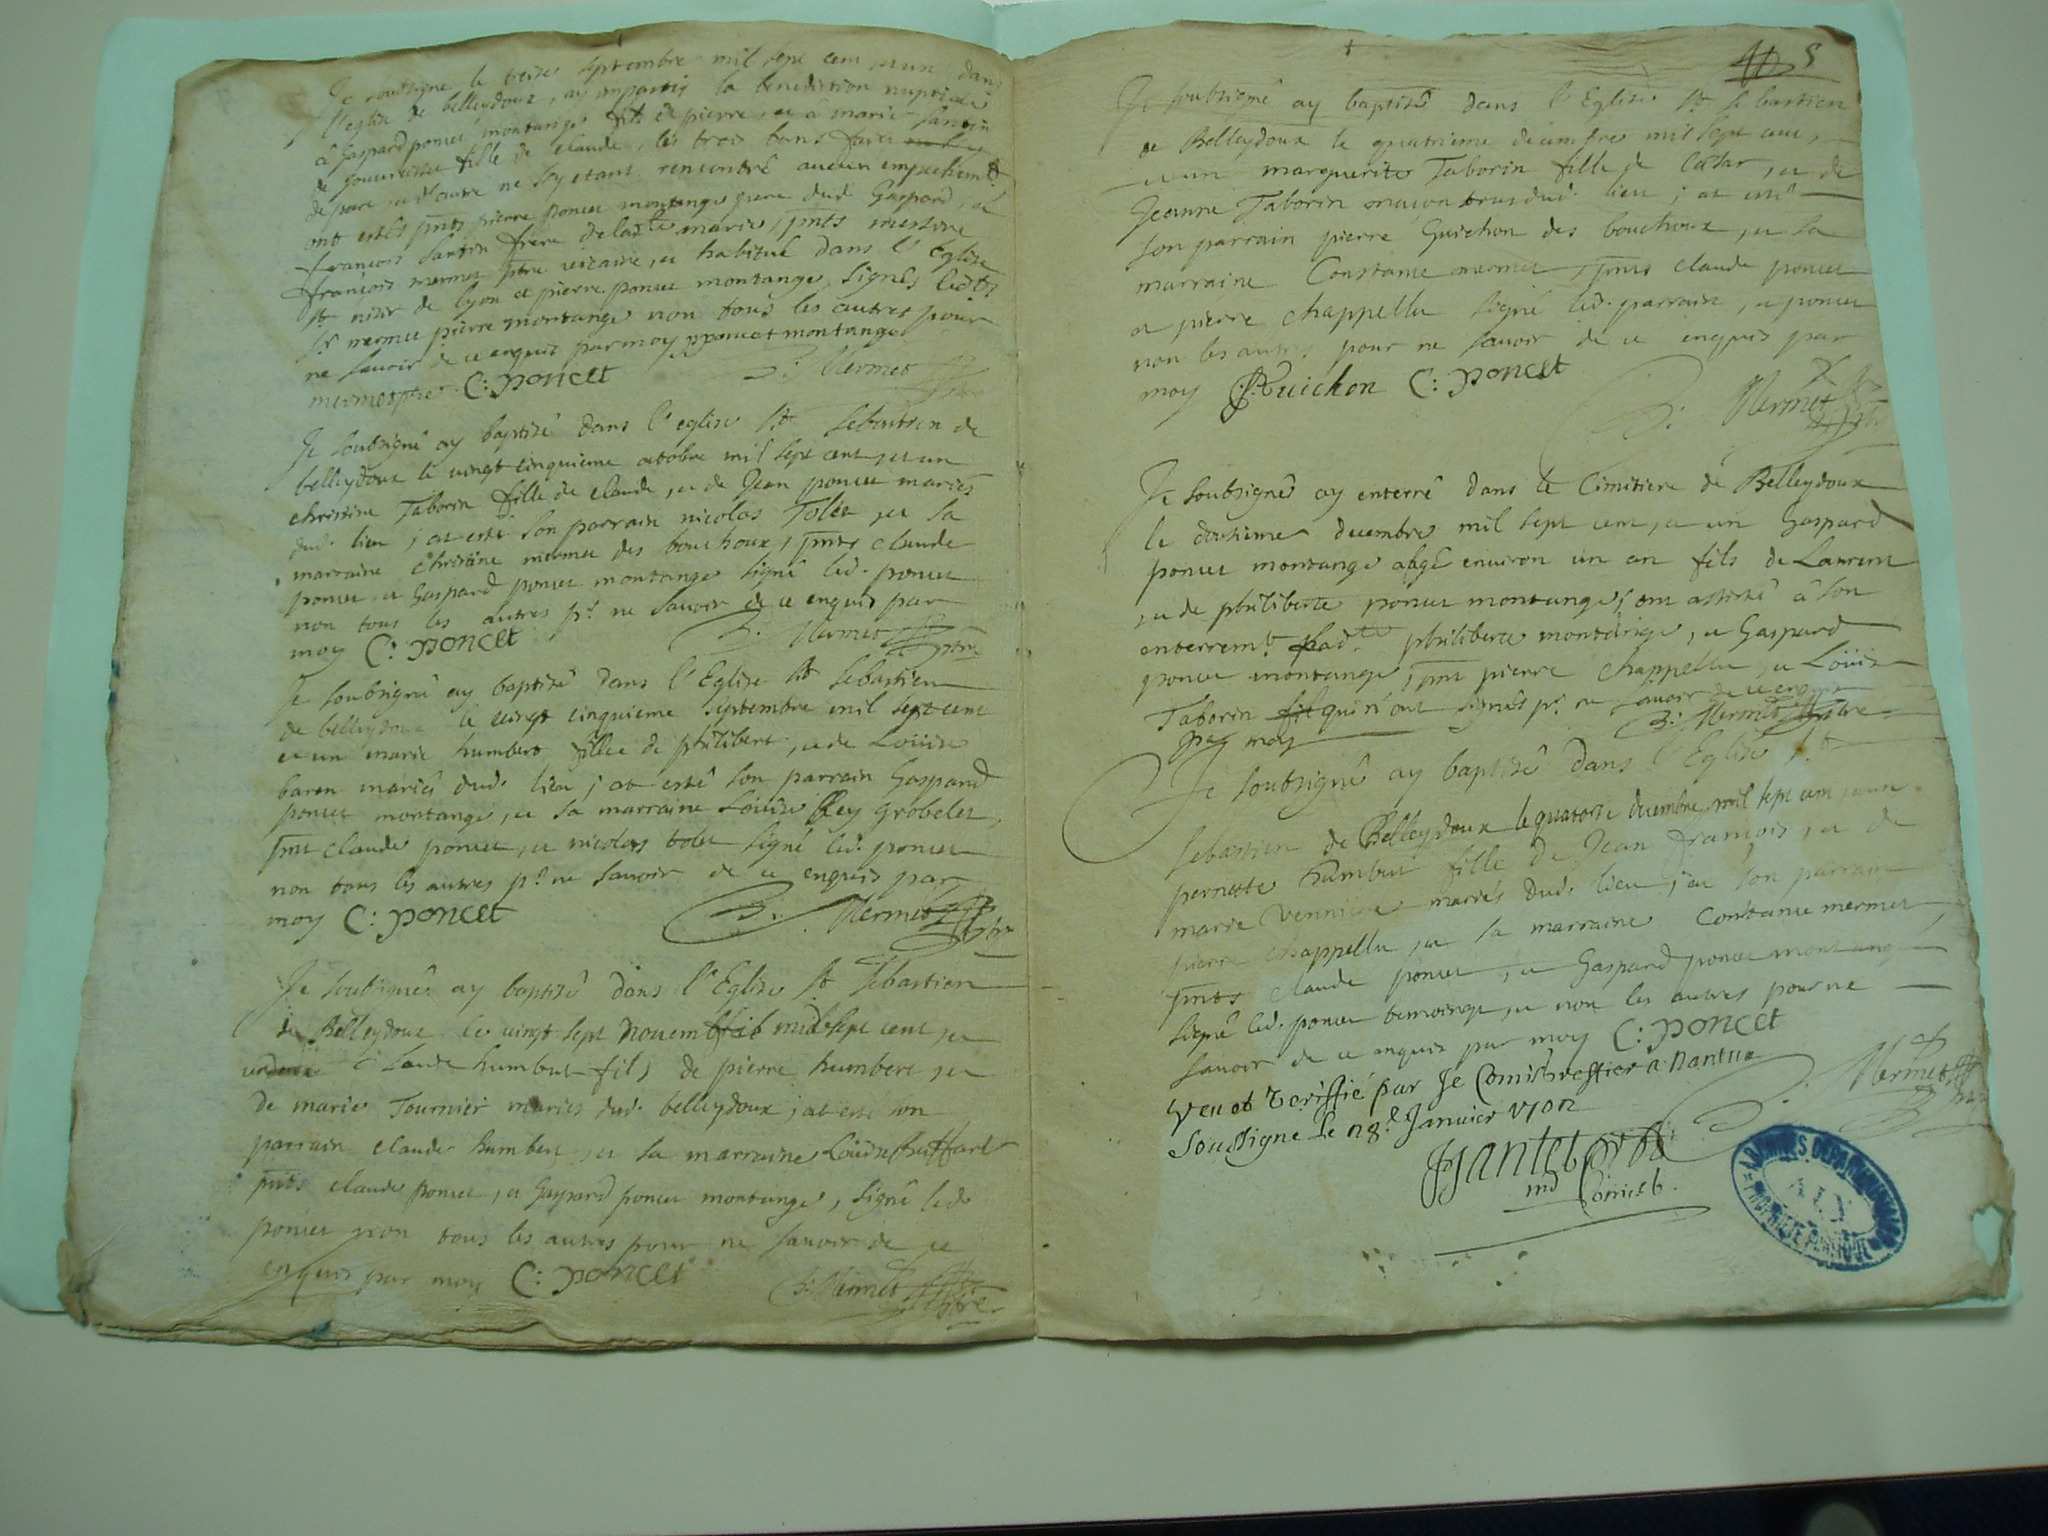 Je soubsigné le treise septembre mil sept cent et un dans
l'eglise de belleydoux, ay imparty la benediction nuptiale
à Gaspard poncet montange fils de pierre, et à marie
fille de claude, les trois bans faits
de part et d'autre ne s'y etant rencontré aucun empechemt
ont estés pnts pierre poncet montange pere dud. Gaspard, et
francois frere de ladte marie, pnts messire
françois mermet ptre vicaire, et habitué dans l'Eglise
st nisir de lyon et pierre poncet montange, signés lesdts
sr mermet pierre montange non tous les autres pour
ne sauoir de ce enquis par moy pponcet montange
mermet ptre C: poncet B: Mermet ptre
Je soubsigné ay baptisé dans l'eglise st sebastien de
belleydoux le vingt cinquieme octobre mil sept cent et un
christine Taborin fille de claude, et de Jean poncet mariés
dud. lieu; at esté son parrain nicolas Tolet et sa
marraine christine mermet des bouchoux, pnts claude
poncet et Gaspard poncet montange signé led. poncet
non tous les autres pr. ne sauoir de ce enquis par
moy C: poncet B: Mermet ptre
Je soubsigné ay baptisé dans l'Eglise st sebastien
de belleydoux le vingt cinquieme septembre mil sept cent
et un marie humbert fillie de philibert, et de Loüise
baron mariés dud. lieu; at esté son parrain Gaspard
poncet montange, et sa marraine Loüise Rey grobelet,
pnt claude poncet, et nicolas tolet signé led. poncet
non tous les autres pr. ne sauoir de ce enquis par
moy C: poncet B: Mermet ptre
Je soubsigné ay baptisé dans l'Eglise st sebastien
de Belleydoux le vingt sept nouembre mil sept cent et
un claude humbert fils de pierre humbert et
de marie Tournier mariés dud. belleydoux; at esté son
parrain claude humbert et sa marraine Loüise
pnts claude poncet, et Gaspard poncet montange, signé led.
poncet non tous les autres pour ne sauoir de ce
enquis par moy C: poncet B: Mermet ptre
5
Je soubsigné ay baptisé dans l'Eglise st sebastien
de Belleydoux le quatrieme decembre mil sept cent,
et un marguerite Taborin fille de Cæsar, et de
Jeanne Taborin dud. lieu; at esté
son parrain pierre Guichon des bouchoux, et sa
marraine Constance mermet, pnts claude poncet
et pierre chappellu signé led. parrain, et poncet
non les autres pour ne sauoir de ce enquis par
moy PGuichon C: poncet B: Mermet ptre
Je soubsigné ay enterré dans le Cimitiere de Belleydoux
le dousieme decembre mil sept cent, et un Gaspard
poncet montange agé environ un an fils de Laurent
et de philiberte poncet montange; ont assisté à son
enterremt. ladte philiberte montange, et Gaspard
poncet montange, pnt pierre chappellu, et Loüis
Taborin qui n'ont signés pr. ne sauoir de ce enquis
par moy B: Mermet ptre
Je soubsigné ay baptisé dans l'Eglise st
sebastien de Belleydoux le quatorse decembre mil sept cent et un
pernette humbert fille de Jean françois, et de
marie mariés dud. lieu; et son parrain
pierre chappellu, et sa marraine Constance mermet,
pnts claude poncet, et Gaspard poncet montange
signé led. poncet et non les autres pour ne
sauoir de ce enquis par moy C: poncet
B: Mermet ptre
Veu et veriffié par Je Comis greffier a nantua
soussigne le 28e Janvier 1702
Comis
ARCHIVES DEPARTEMENTALES
AIN